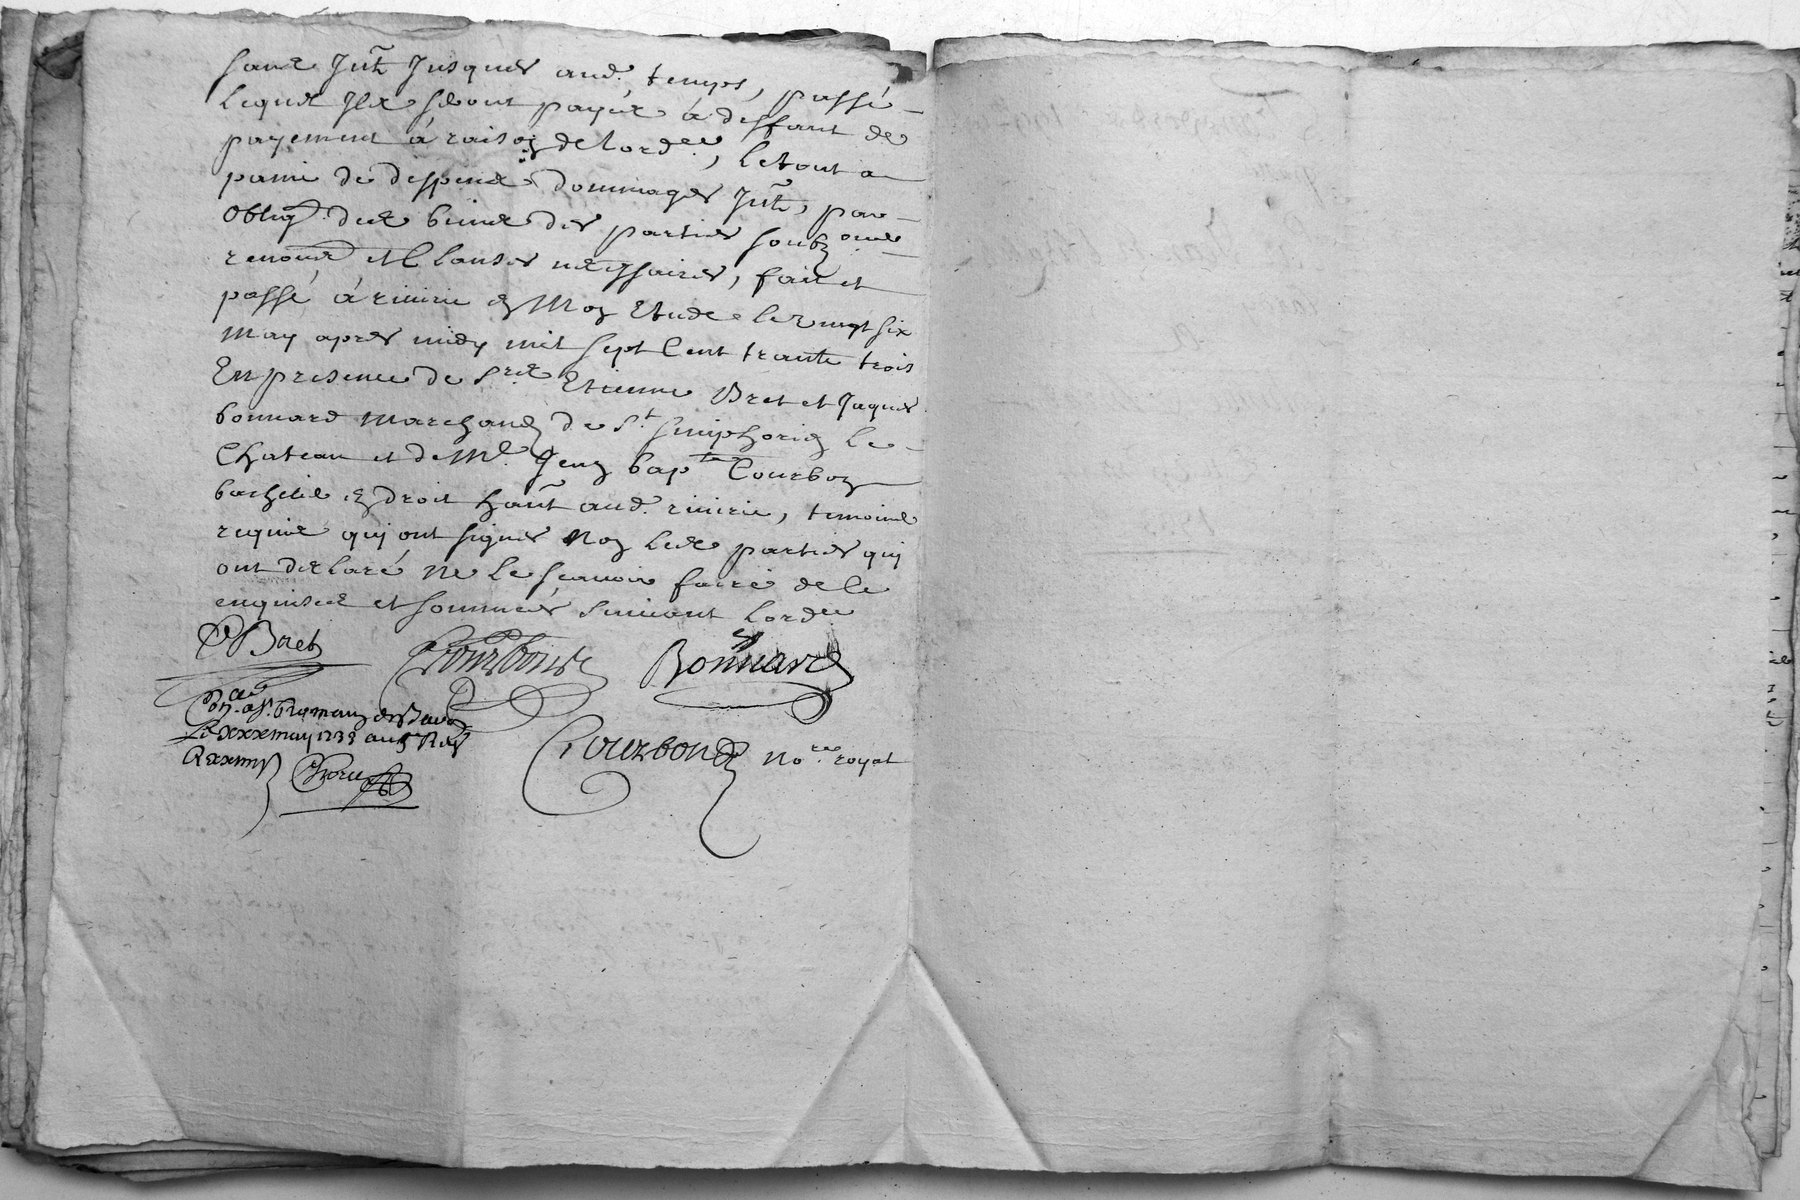 sans Jnt. Jusques aud. temps, passé
Lequel Ils seront payés à deffaut de
payement à raison de lord.ce, le tout a
paine de despens dommages Jnt., par
oblig.on des biens des parties soubz.ons
renon.ons et Clauses necessaires, fait et
passé à riverie en Mon Etude le vingt six
may apres midy mil sept Cent trante trois
En presence de Srs Etienne Bret et Jaques
bonnard marchands de St. simphorien le
Chateau et de Me. Jean bap.te Courbon
bachelié en droit ha.nt aud. riverie, temoins
requis qui ont signés Non Lesd. parties qui
ont declaré ne le scavoir faire de ce
enquises et sommées suivant lord.ce
E Bret Courbon Bonnard
Con. a St. Romain
Le xxx may 1733
Courbon No.re royal